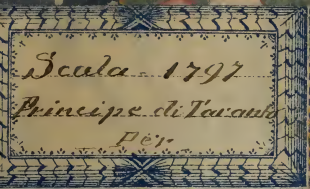 Scala - 1797
Principe di Taranto
Per.